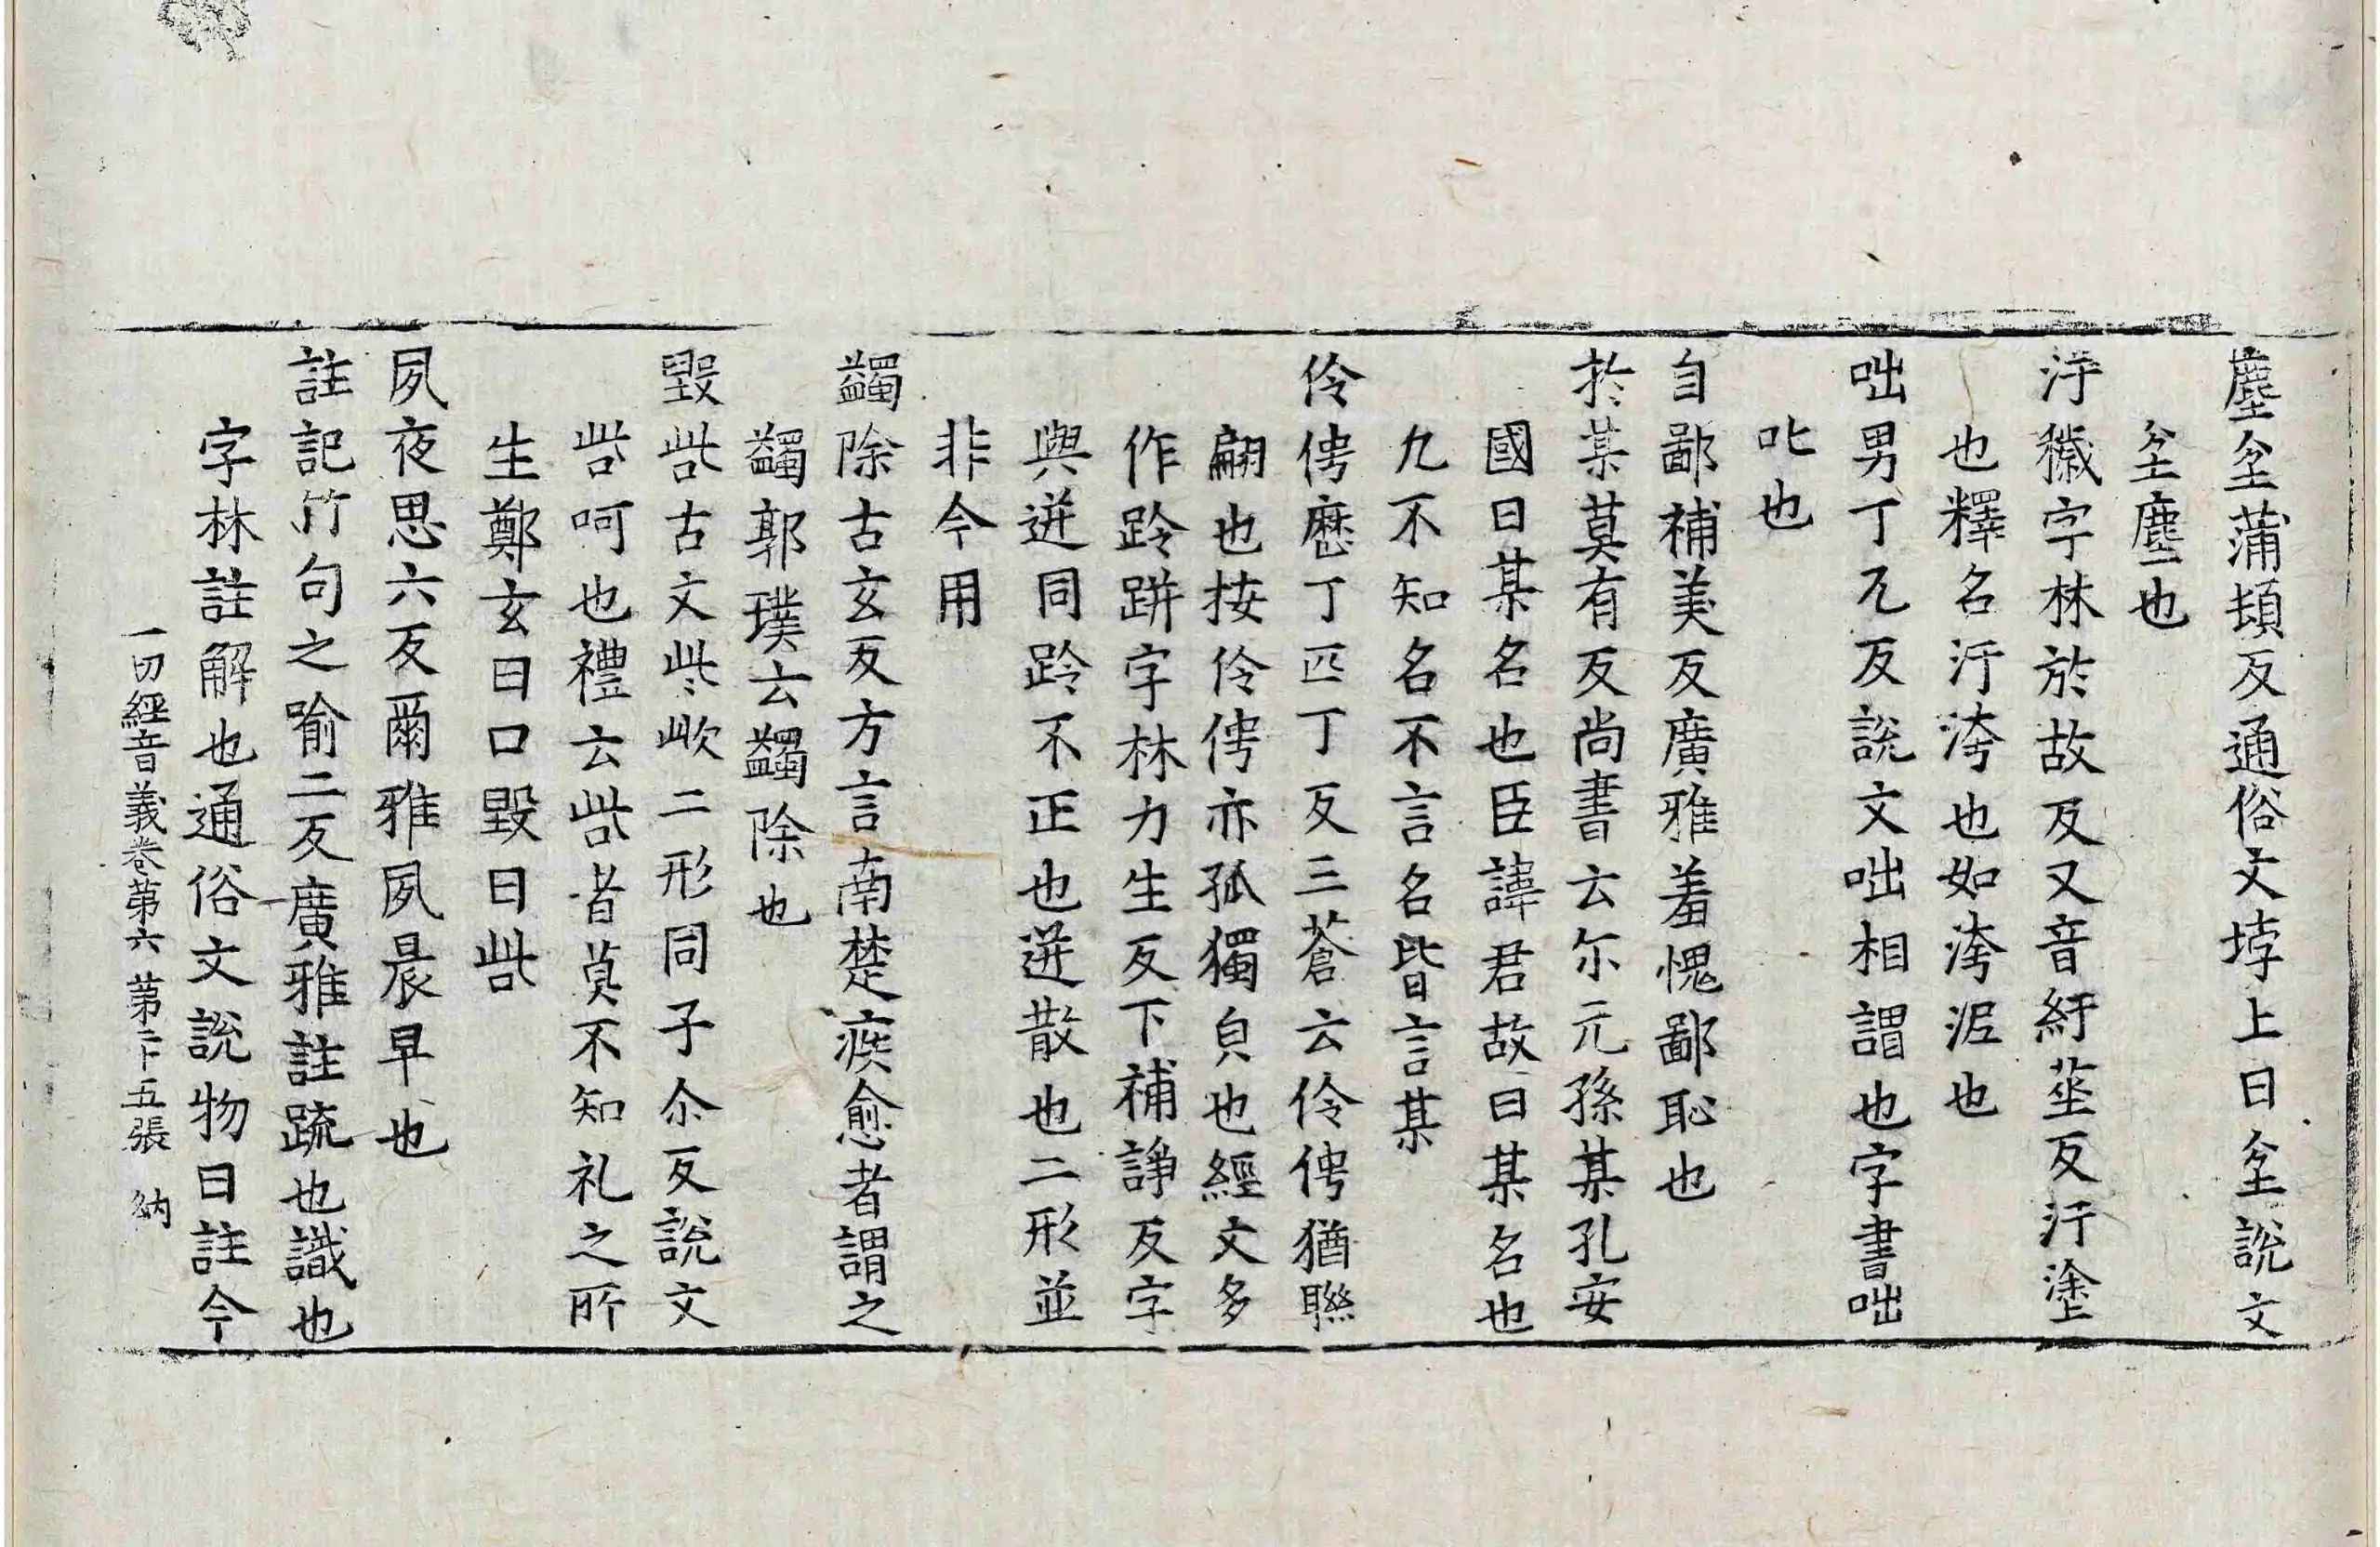 塵坌蒲頓反通俗文㘄上曰坌說文
坌塵也
汙穢字林於故反又音紆莝反汙塗
也釋名汙洿也如洿泥也
咄男丁兀反說文咄相謂也字書咄
叱也
自鄙補美反廣雅羞愧鄙恥也
於某莫有反尚書云尒元孫某孔安
國曰某名也臣諱君故曰某名也
九不知名不言名皆言某
伶俜歷丁匹丁反三蒼云伶俜猶聯
翩也按伶俜亦孤獨皃也經文多
作跉跰字林力生反下補諍反字
與迸同跉不正也迸散也二形並
非今用
蠲除古玄反方言南楚疾愈者謂之
蠲郭璞云蠲除也
毀呰古文些㰣二形同子尒反說文
呰呵也禮云呰者莫不知礼之所
生鄭玄曰口毀曰呰
夙夜思六反爾雅夙晨早也
註記竹句之喻二反廣雅註疏也識也
字林註解也通俗文說物曰註今
一切經音義卷第六 第二十五張 納